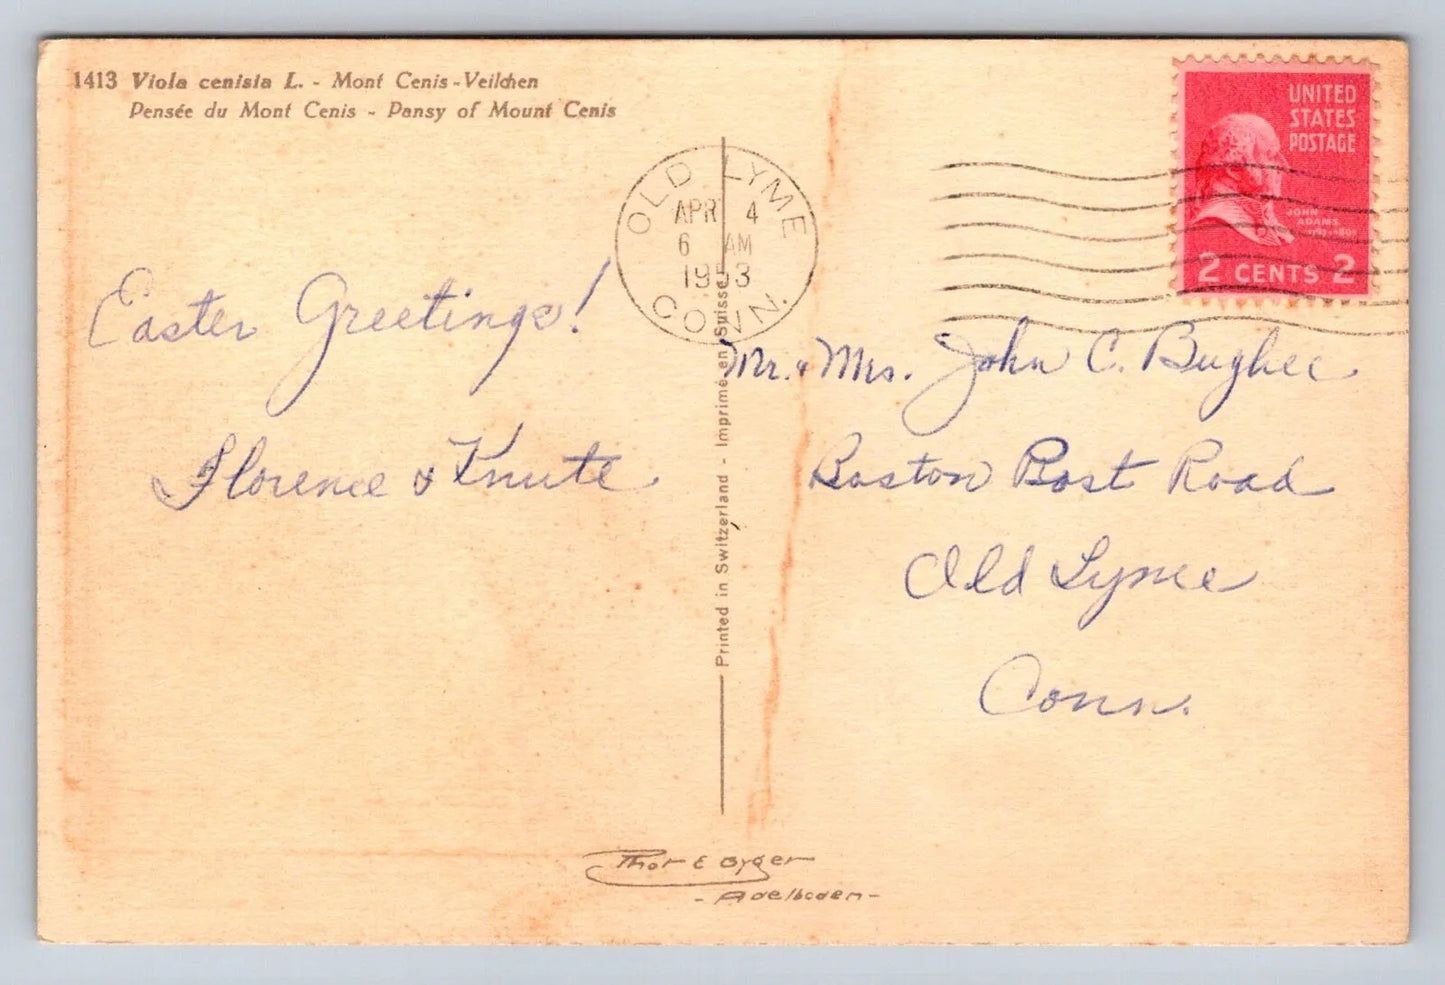 1413 Viola cenisia L. - Mont Cenis-Veilchen
Pensée du Mont Cenis - Pansy of Mount Cenis
UNITED
STATES
POSTAGE
JOHN
ADAMS
2 CENTS 2
OLD LYME
APR 4
6 AM
1953
CONN.
Easter Greetings!
Florence & Knute
Mr. & Mrs. John C. Bugbee
Boston Post Road
Old Lyme
Conn.
Printed in Switzerland - Imprimé en Suisse
Thor E Gyger
- Adelboden -